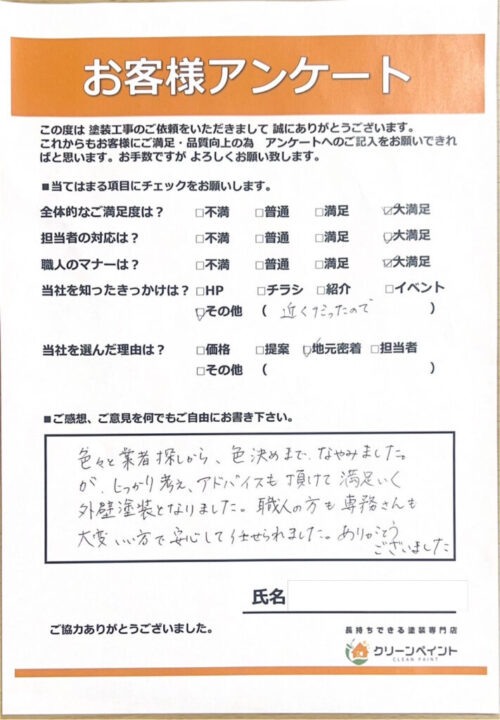 お客様アンケート
この度は 塗装工事のご依頼をいただきまして 誠にありがとうございます。
これからもお客様にご満足・品質向上の為　アンケートへのご記入をお願いできれ
ばと思います。お手数ですが よろしくお願い致します。
■当てはまる項目にチェックをお願いします。
全体的なご満足度は？ □不満 □普通 □満足 ☑大満足
担当者の対応は？ □不満 □普通 □満足 ☑大満足
職人のマナーは？ □不満 □普通 □満足 ☑大満足
当社を知ったきっかけは？ □HP □チラシ □紹介 □イベント
☑その他 （ 近くだったので ）
当社を選んだ理由は？ □価格 □提案 ☑地元密着 □担当者
□その他 （ ）
■ご感想、ご意見を何でもご自由にお書き下さい。
色々と業者探しから、色決めまで、なやみました。
が、じっかり考え、アドバイスも頂けて満足いく
外壁塗装となりました。職人の方も専務さんも
大変いい方で安心して任せられました。ありがとう
ございました
氏名
ご協力ありがとうございました。
長持ちできる塗装専門店
クリーンペイント
CLEAN PAINT